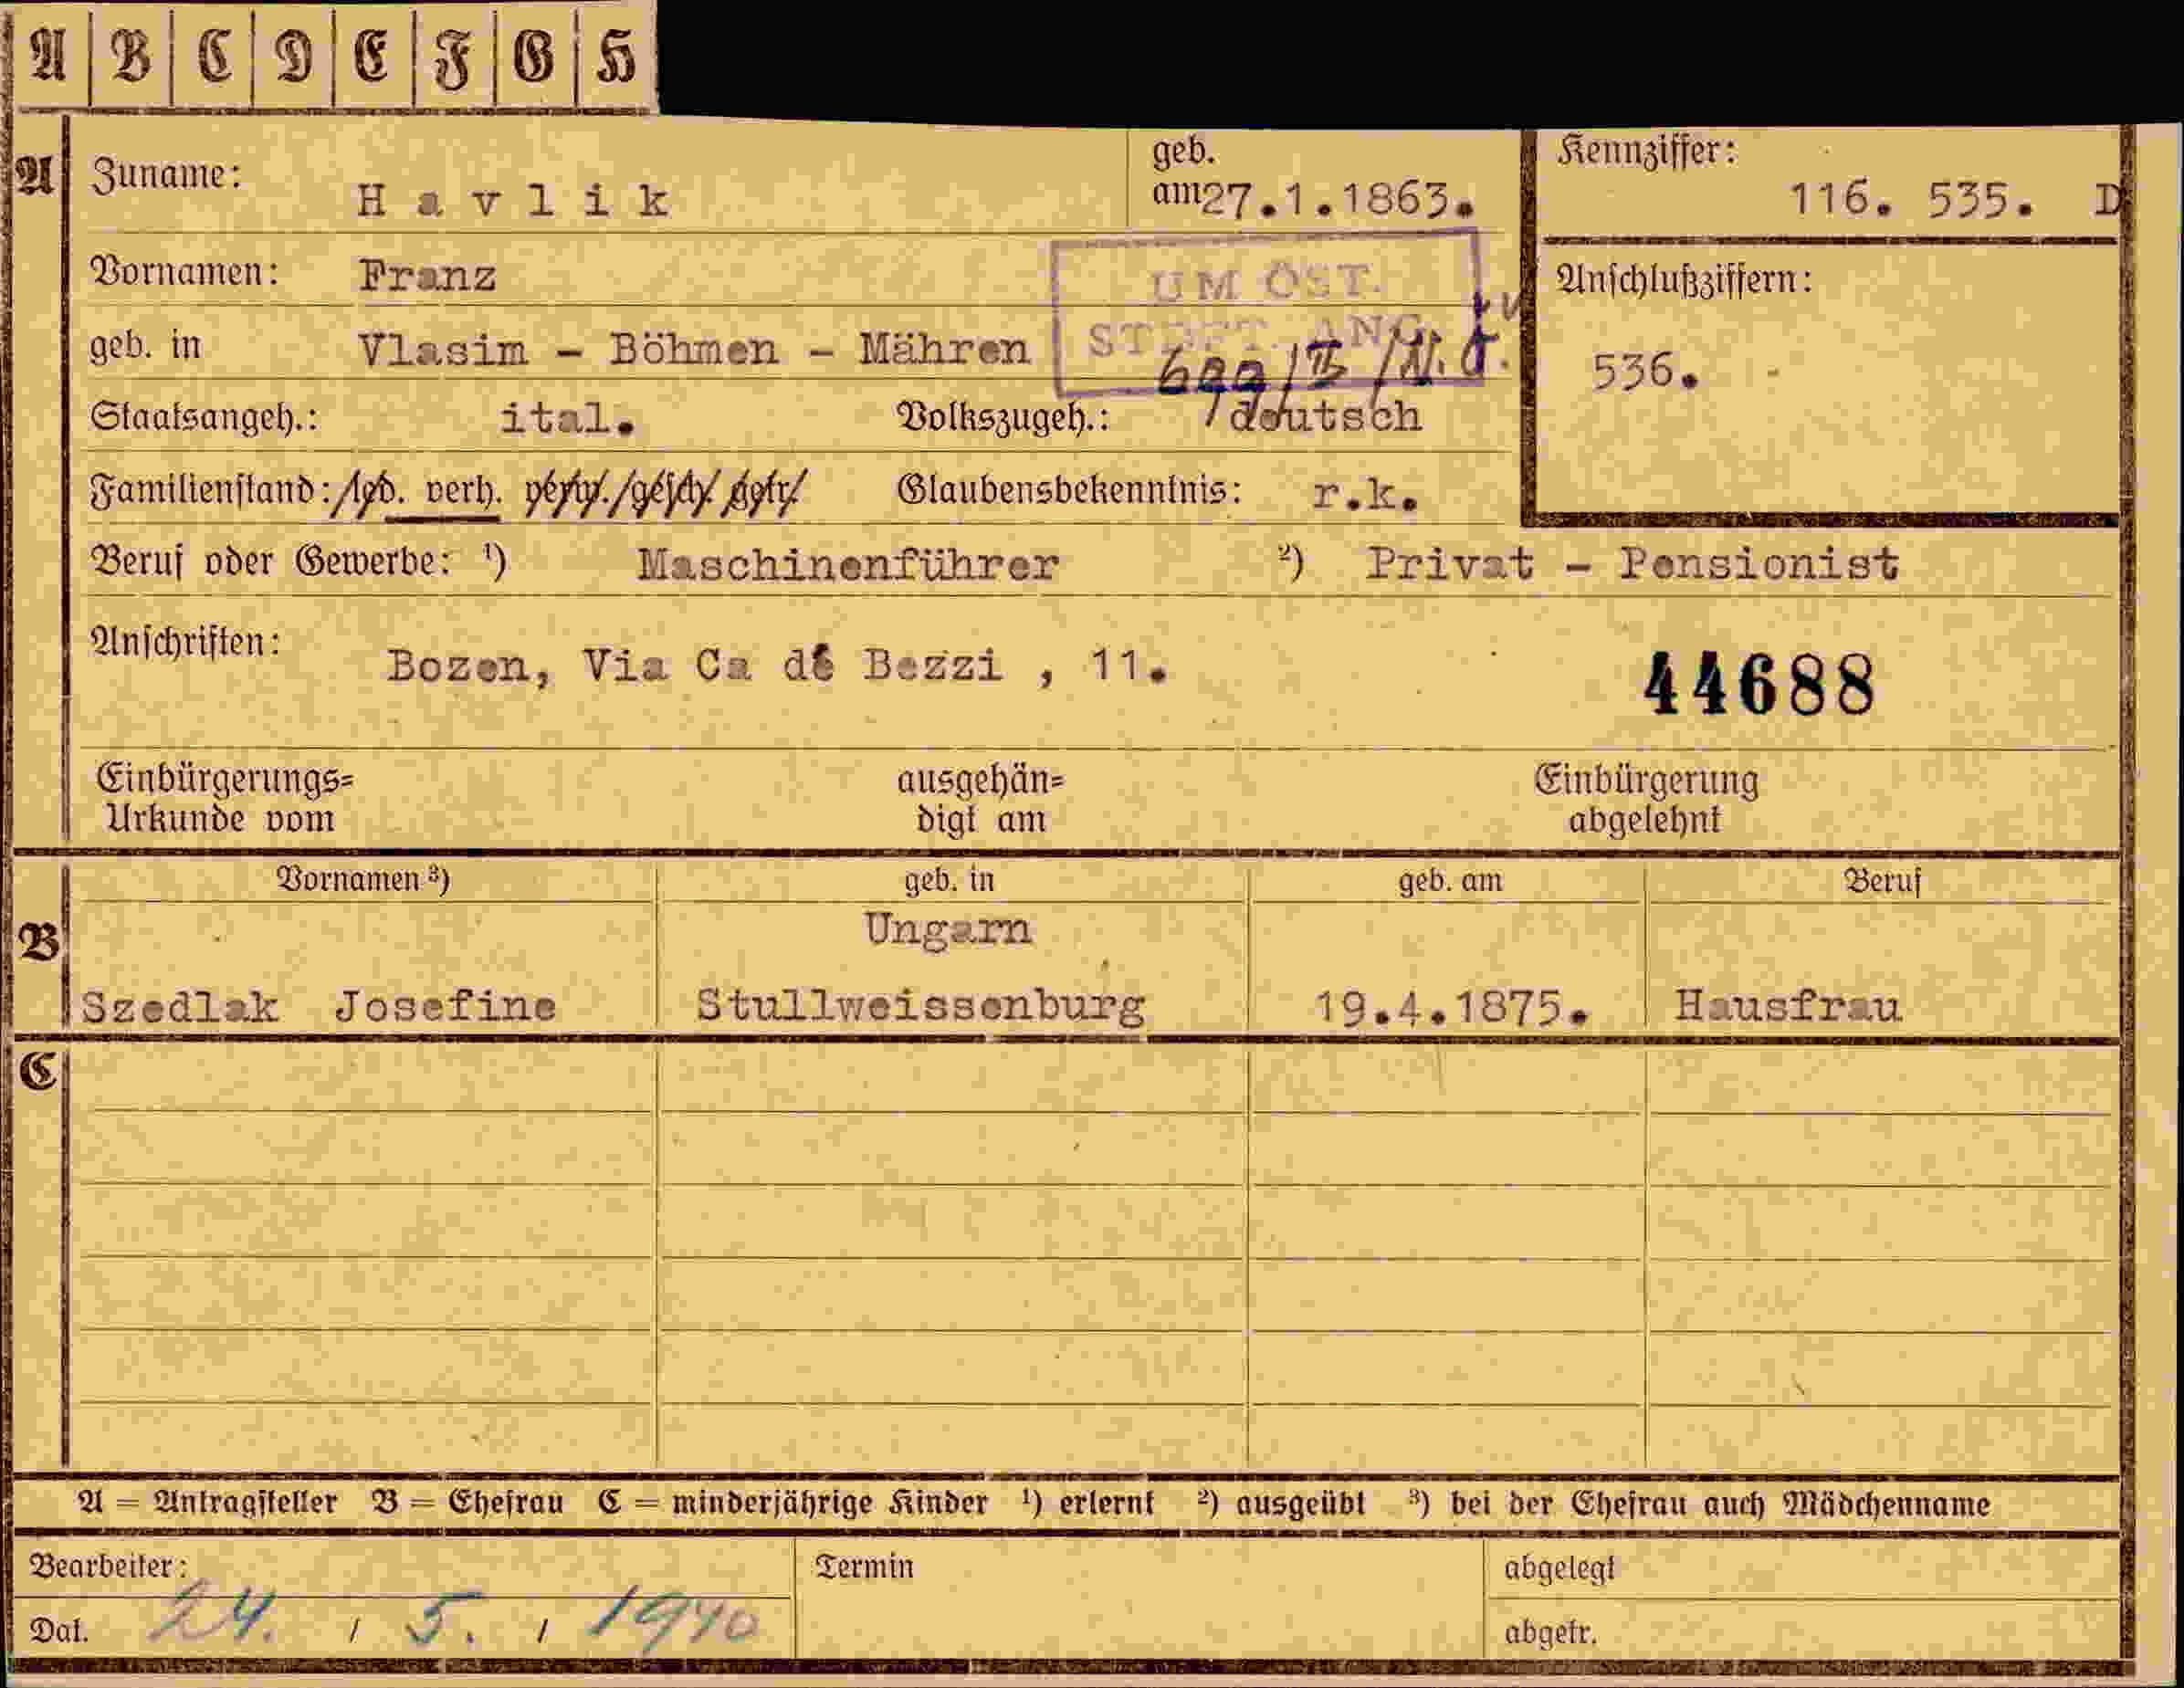 A B C D E F G H
A Zuname: Havlik geb. am 27.1.1863. Kennziffer: 116. 535. D
Vornamen: Franz UM ÖST. Anschlußziffern:
geb. in Vlasim - Böhmen - Mähren 536.
Staatsangeh.: ital. Volkszugeh.: deutsch
Familienstand: led. verh. verw. gesch. getr. Glaubensbekenntnis: r.k.
Beruf oder Gewerbe: ¹) Maschinenführer ²) Privat - Pensionist
Anschriften: Bozen, Via Ca dé Bezzi , 11. 44688
Einbürgerungs= ausgehän= Einbürgerung
Urkunde vom digt am abgelehnt
Vornamen ³) geb. in geb. am Beruf
B Ungarn
Szedlak Josefine Stullweissenburg 19.4.1875. Hausfrau
C
A = Antragsteller B = Ehefrau C = minderjährige Kinder ¹) erlernt ²) ausgeübt ³) bei der Ehefrau auch Mädchenname
Bearbeiter: Termin abgelegt
Dat. 24. / 5. / 1940 abgetr.